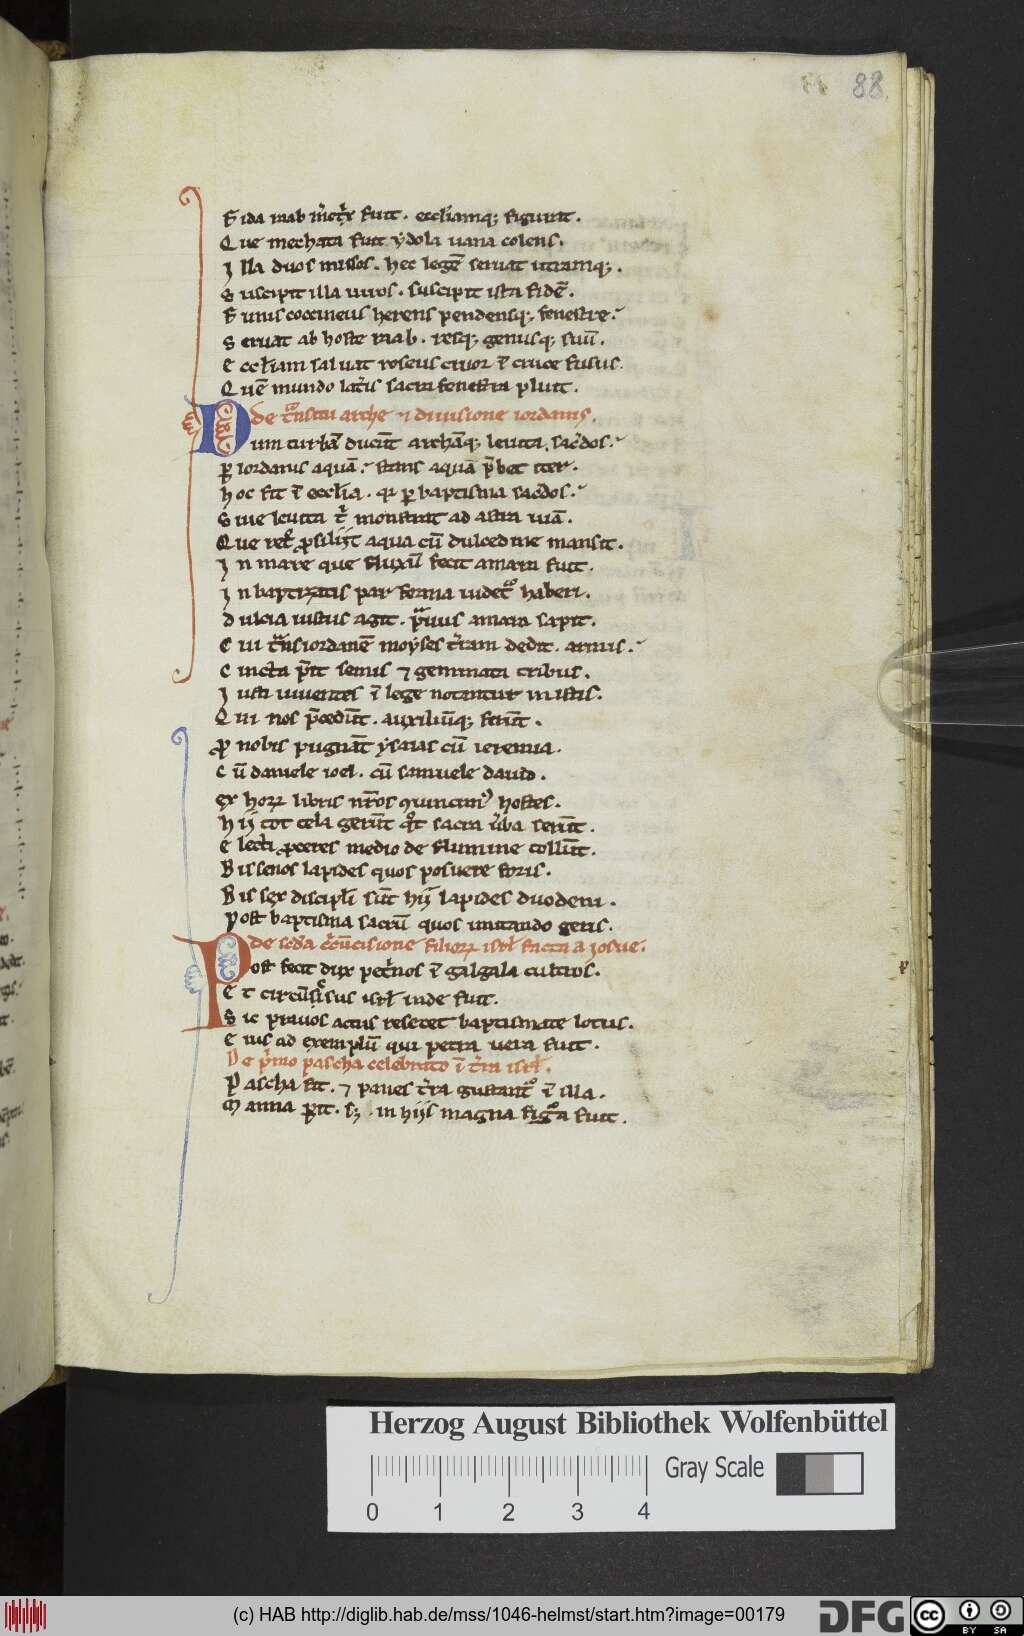 88
F ida raab mͤtͣx fuit. eccl̄iamq; figurat.
Q ue mechata fuit ẏdola uana colens.
I lla duos missos. hec legē seruat utramq;.
S uscipit illa uiros. suscipit ista fidē.
F unis coccineus herens pendensq; fenestre.
S eruat ab hoste raab. resq; genusq; suū.
E ccl̄iam saluat roseus cruor ī cruce fusus.
Q uē mundo lat̄is sacra fenestra pluit.
de t̾nsitu arche ⁊ diuisione iordanis.
D um turbā ducūt archāq; leuita sac̾dos.
ꝑ iordanis aquā. stans aquā p̄bet iter.
h oc fit ī eccl̄ia. qr ꝑ baptisma sac̾dos.
S iue leuita t̾ monstrat ad astra uiā.
Q ue ret̾ ꝓsiliit aqua cū dulcedine mansit.
I n mare que fluxit fecit amara fuit.
I n baptizatis par forma uidet̾ haberi.
d ulcia iustus agit. prauus amara sapit.
C ui t̾nsiordanē moẏses t̾ram dedit. armis.
C incta p̄it semis ⁊ geminata tribus.
I usti uiuentes ī lege notantur in istis.
Q ui nos p̄cedūt. auxiliūq; ferūt.
ꝓ nobis pugnāt ẏsaias cū ieremia.
C ū daniele ioel. cū samuele dauid.
Ex horꝝ libris nr̄os quincimꝰ hostes.
H ij tot tela gerūt qͦt sacra ūba serūt.
E lecti ꝓceres medio de flumine tollūt.
B issenos lapides quos posuere foris.
B is sex discipl̄i sūt hij lapides duodeni.
P ost baptisma sacrū quos imitando geris.
de scd̄a c̾cūcisione filiorꝝ isrl̄ facta a josue.
P ost fecit dux pet̾nos ī galgala cultros.
E t circūsisus isrl̄ inde fuit.
S ic prauos actus resecet baptismate lotus.
E ius ad exemplū qui petra uera fuit.
De p̾mo pascha celebrato ī t̾ra isrl̄.
P ascha fit. ⁊ panes t̾ra gustant̾ ī illa.
M anna ꝑit. sꝫ. in hijs magna figͣa fuit.
Herzog August Bibliothek Wolfenbüttel
Gray Scale
0 1 2 3 4
(c) HAB http://diglib.hab.de/mss/1046-helmst/start.htm?image=00179
DFG
cc BY SA